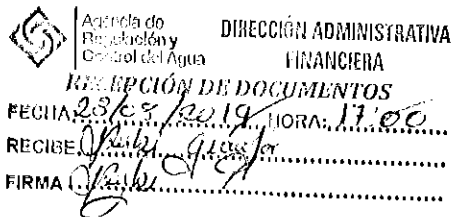 Agencia de
Regulación y
Control del Agua
DIRECCIÓN ADMINISTRATIVA
FINANCIERA
RECEPCIÓN DE DOCUMENTOS
FECHA: 23/ /2019 HORA: 17:00
RECIBE
FIRMA